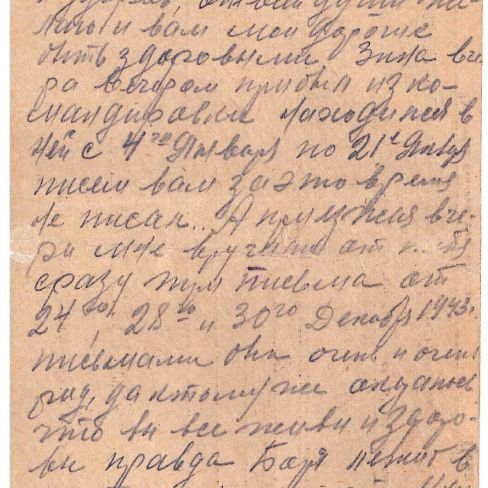 здоров, от всей души же-
лаю и вам мои дорогие
быть здоровыми. Зина вче
ра вечером прибыл из ко-
мандировки находился в
ней с 4го Января по 21е Января
писем вам за это время
не писал.. А приезжая вче-
ра мне вручили от
сразу три письма от
24го, 28го и 30го Декабря 1943г.
письмами очень и очень
рад, да к тому же
что вы все живы и здоро-
вы правда Боря лежит в